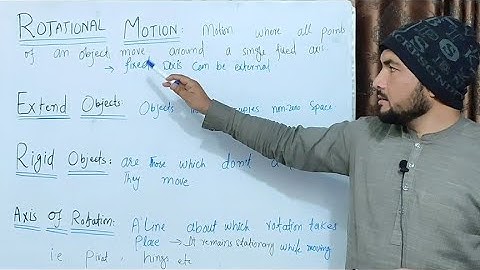 ROTATIONAL MOTION: Motion where all points
of an object move around a single fixed axis.
→ fixed axis can be external
Extend Objects: Objects non-zero space.
Rigid Objects: are those which don't
They move
Axis of Rotation: A Line about which rotation takes
Place → It remains stationary while moving
i.e Pivot, hings etc